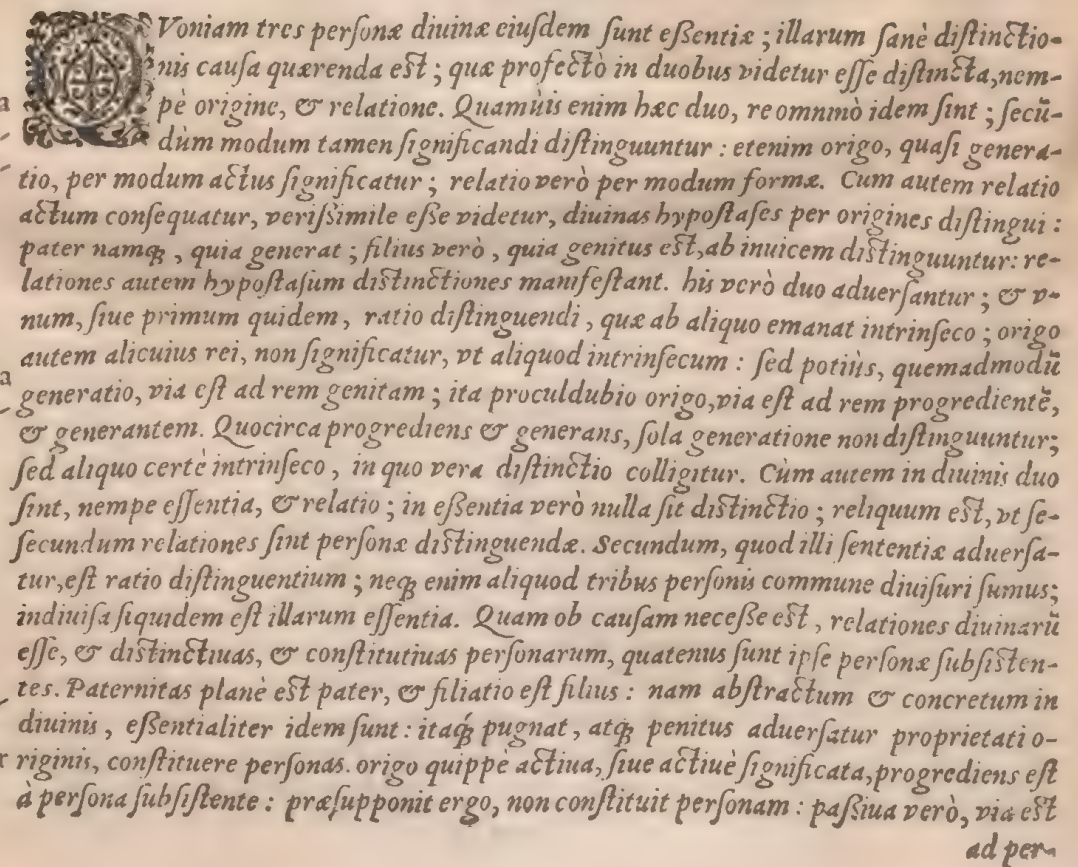 QVoniam tres perſonæ diuinæ eiuſdem ſunt eſſentiæ; illarum ſanè diſtinctio-
nis cauſa quærenda eſt; quæ profectò in duobus videtur eſſe diſtincta, nem-
pè origine, & relatione. Quamùis enim hæc duo, re omninò idem ſint; ſecũ-
dùm modum tamen ſignificandi diſtinguuntur: etenim origo, quaſi genera-
tio, per modum actus ſignificatur; relatio verò per modum formæ. Cum autem relatio
actum conſequatur, veriſſimile eſſe videtur, diuinas hypoſtaſes per origines diſtingui:
pater namq́;, quia generat; filius verò, quia genitus eſt, ab inuicem diſtinguuntur: re-
lationes autem hypoſtaſum diſtinctiones manifeſtant. his verò duo aduerſantur; & v-
num, ſiue primum quidem, ratio diſtinguendi, quæ ab aliquo emanat intrinſeco; origo
autem alicuius rei, non ſignificatur, vt aliquod intrinſecum: ſed potiùs, quemadmodũ
generatio, via eſt ad rem genitam; ita proculdubio origo, via eſt ad rem progrediente᷉,
& generantem. Quocirca progrediens & generans, ſola generatione non diſtinguuntur;
ſed aliquo certè intrinſeco, in quo vera diſtinctio colligitur. Cùm autem in diuinis duo
ſint, nempe eſſentia, & relatio; in eſſentia verò nulla ſit diſtinctio; reliquum eſt, vt ſe-
ſecundum relationes ſint perſonæ diſtinguendæ. Secundum, quod illi ſententiæ aduerſa-
tur, eſt ratio diſtinguentium; neq; enim aliquod tribus perſonis commune diuiſuri ſumus;
indiuiſa ſiquidem eſt illarum eſſentia. Quam ob cauſam neceſſe eſt, relationes diuinarũ
eſſe, & diſtinctiuas, & conſtitutiuas perſonarum, quatenus ſunt ipſæ perſonæ ſubſiſten-
tes. Paternitas planè eſt pater, & filiatio eſt filius: nam abſtractum & concretum in
diuinis, eſſentialiter idem ſunt: itaq́; pugnat, atq; penitus aduerſatur proprietati o-
riginis, conſtituere perſonas. origo quippè actiua, ſiue actiuè ſignificata, progrediens eſt
à perſona ſubſiſtente: præſupponit ergo, non conſtituit perſonam: paſſiua verò, via eſt
ad per-